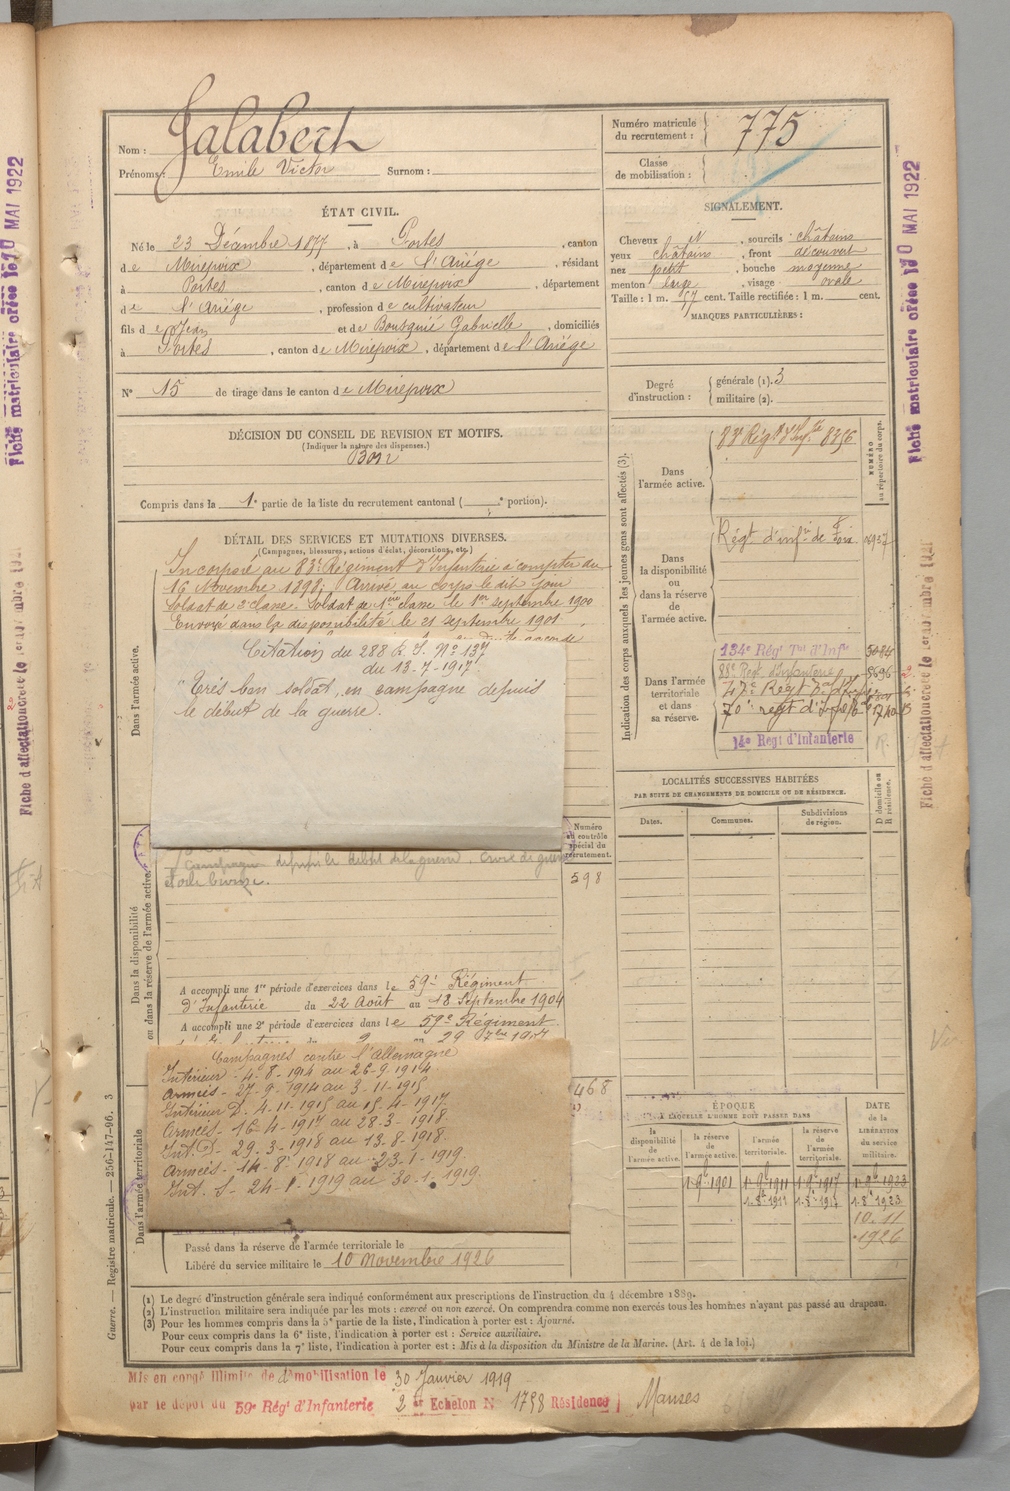 Nom : Jalabert
Prénoms : Emile Victor Surnom :
Numéro matricule du recrutement : 775
Classe de mobilisation :
ÉTAT CIVIL.
Né le 23 Décembre 1877, à Portes, canton
de Mirepoix, département de l'Ariége, résidant
à Portes, canton de Mirepoix, département
de l'Ariége, profession de cultivateur
fils de Jean et de Bousquié Gabrielle, domiciliés
à Portes, canton de Mirepoix, département de l'Ariége
N° 15 de tirage dans le canton de Mirepoix
SIGNALEMENT.
Cheveux et, sourcils châtains
yeux châtains, front découvert
nez petit, bouche moyenne
menton large, visage ovale
Taille : 1 m. 57 cent. Taille rectifiée : 1 m. cent.
MARQUES PARTICULIÈRES :
Degré d'instruction : générale (1). 3
militaire (2).
DÉCISION DU CONSEIL DE REVISION ET MOTIFS.
(Indiquer la nature des dispenses.)
Bon
Compris dans la 1e partie de la liste du recrutement cantonal ( e portion).
DÉTAIL DES SERVICES ET MUTATIONS DIVERSES.
(Campagnes, blessures, actions d'éclat, décorations, etc.)
Dans l'armée active.
Incorporé au 83e Régiment d'Infanterie à compter du
16 Novembre 1898. Arrivé au corps le dit jour
Soldat de 2e classe. Soldat de 1ère classe le 1er septembre 1900
Envoyé dans la disponibilité le 21 septembre 1901.
Citation du 288 R.I. N° 137
du 13-7-1917
"Très bon soldat, en campagne depuis
le début de la guerre.
Campagne depuis le début de la guerre. Croix de guerre
étoile bronze.
Numéro au contrôle spécial du recrutement.
598
Dans la disponibilité ou dans la réserve de l'armée active.
A accompli une 1re période d'exercices dans le 59e Régiment
d'Infanterie du 22 Août au 18 Septembre 1904
A accompli une 2e période d'exercices dans le 59e Régiment
Campagnes contre l'Allemagne
Intérieur - 4-8-1914 au 26-9-1914
Armées - 27-9-1914 au 3-11-1915
Intérieur D. 4-11-1915 au 15-4-1917
Armées - 16-4-1917 au 28-3-1918
Int. D - 29-3-1918 au 13-8-1918
Armées - 14-8-1918 au 23-1-1919
Int. S - 24-1-1919 au 30-1-1919
468
Dans l'armée territoriale
Passé dans la réserve de l'armée territoriale le
Libéré du service militaire le 10 Novembre 1926
Indication des corps auxquels les jeunes gens sont affectés (3).
NUMÉRO au répertoire du corps.
Dans l'armée active.
83e Régt d'Infie 8356
Dans la disponibilité ou dans la réserve de l'armée active.
Régt d'infie de Foix
Dans l'armée territoriale et dans sa réserve.
134e Régt Tal d'Infie
88e Régt d'Infanterie
70e régt d'Inf
14e Régt d'Infanterie
LOCALITÉS SUCCESSIVES HABITÉES
PAR SUITE DE CHANGEMENTS DE DOMICILE OU DE RÉSIDENCE.
Dates.
Communes.
Subdivisions de région.
D domicile ou R résidence.
ÉPOQUE
À LAQUELLE L'HOMME DOIT PASSER DANS
la disponibilité de l'armée active.
la réserve de l'armée active.
l'armée territoriale.
la réserve de l'armée territoriale.
DATE de la LIBÉRATION du service militaire.
1 9bre 1901 1 9bre 1911 1 9bre 1917 1 9bre 1923
1-8-1911 1-8-1917 1-8-1923
10.11
1926
(1) Le degré d'instruction générale sera indiqué conformément aux prescriptions de l'instruction du 4 décembre 1889.
(2) L'instruction militaire sera indiquée par les mots : exercé ou non exercé. On comprendra comme non exercés tous les hommes n'ayant pas passé au drapeau.
(3) Pour les hommes compris dans la 5e partie de la liste, l'indication à porter est : Ajourné.
Pour ceux compris dans la 6e liste, l'indication à porter est : Service auxiliaire.
Pour ceux compris dans la 7e liste, l'indication à porter est : Mis à la disposition du Ministre de la Marine. (Art. 4 de la loi.)
Guerre. — Registre matricule. — 256-147-96. 3
Mis en congé illimité de démobilisation le 30 Janvier 1919
par le dépôt du 59e Régt d'Infanterie 2e Echelon N° 1758 Résidence Manses
Fiche matriculaire créée le 10 MAI 1922
Fiche matriculaire créée le 10 MAI 1922